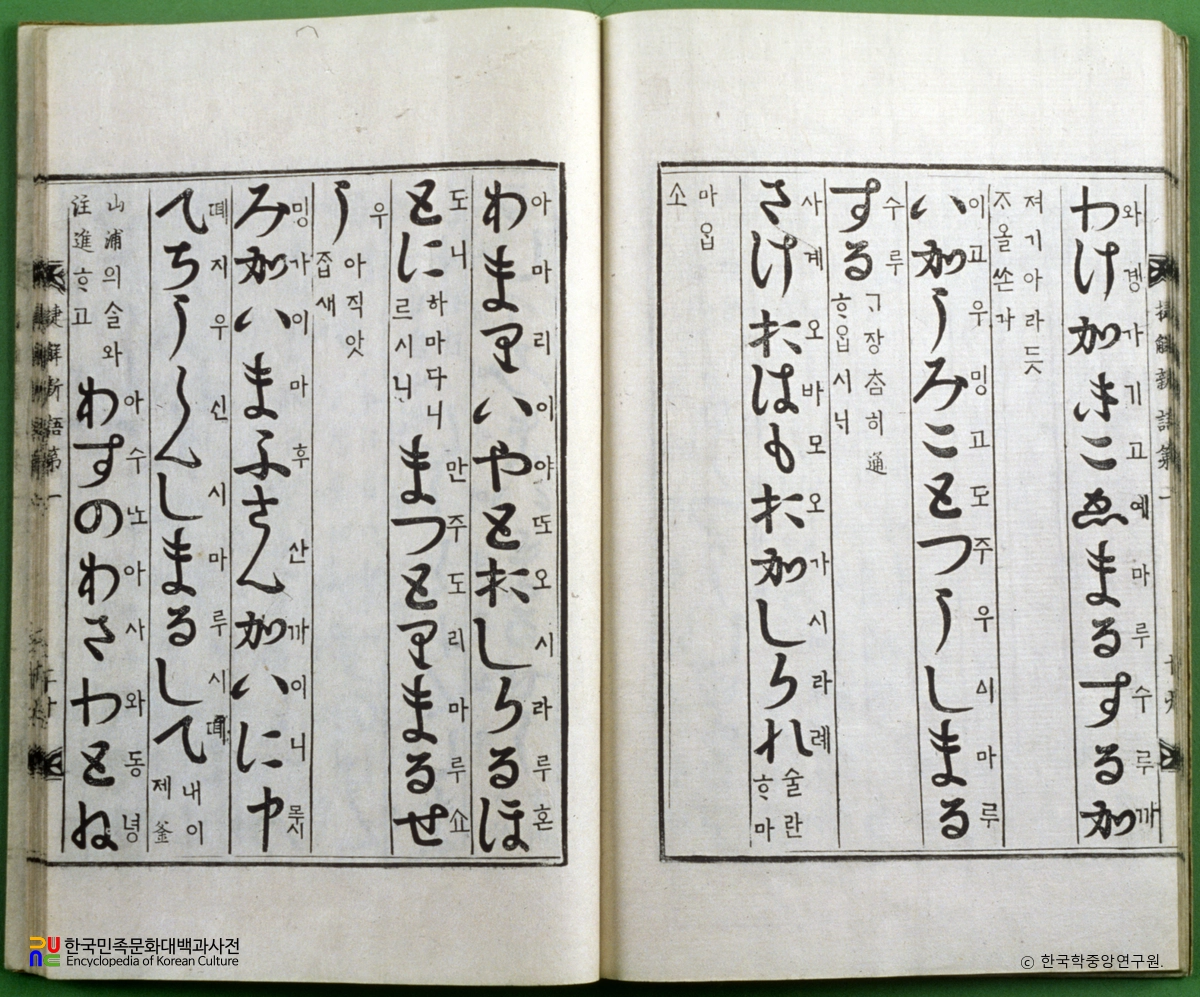 わけかきこゑまるするか
와곙가기고예마루수루까
져기아라듯
ᄌᆞ올쏜가
いかうみことつうしまる
이고우밍고도주우시마루
する
수루
ᄀᆞ장춤히通
ᄒᆞᄋᆞᆸ시ᄂᆡ
さけおはもおかしられ
사계오바모오가시라례
술란
ᄒᆞ마
마ᄋᆞᆸ
소
わまりいやとおしらるほ
아마리이야또오시라루혼
とに
도니
하마다니
르시니
まつとりまるせ
만주도리마루쇼
う
우
아직앗
줍새
みかいまふさんかいにや
밍가이마후산까이니
てちうしんしまるして
뎨지우신시마루시뎨
내이
제釜
山浦의술와
注進ᄒᆞ고
わすのわさわとね
아수노아사와동녕
捷解新語第一
한국민족문화대백과사전
Encyclopedia of Korean Culture
ⓒ 한국학중앙연구원.